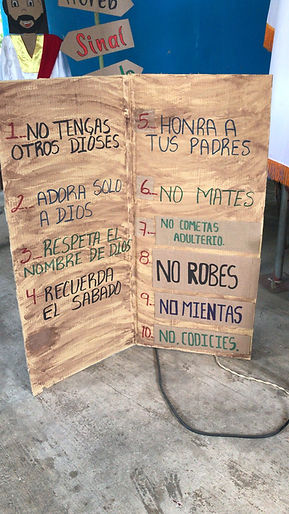 Horeb
Sinaí
1_ NO TENGAS
OTROS DIOSES
2_ ADORA SOLO
A DIOS
3_ RESPETA EL
NOMBRE DE DIOS
4_ RECUERDA
EL SABADO
5_ HONRA A
TUS PADRES
6_ NO MATES
7_ NO COMETAS
ADULTERIO.
8_
NO ROBES
9_ NO MIENTAS
10_ NO, CODICIES.